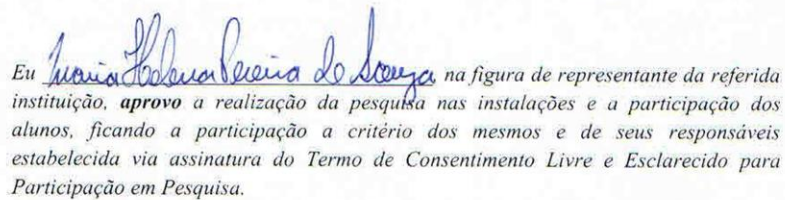 Eu Maria Helena Pereira de Souza na figura de representante da referida
instituição, aprovo a realização da pesquisa nas instalações e a participação dos
alunos, ficando a participação a critério dos mesmos e de seus responsáveis
estabelecida via assinatura do Termo de Consentimento Livre e Esclarecido para
Participação em Pesquisa.